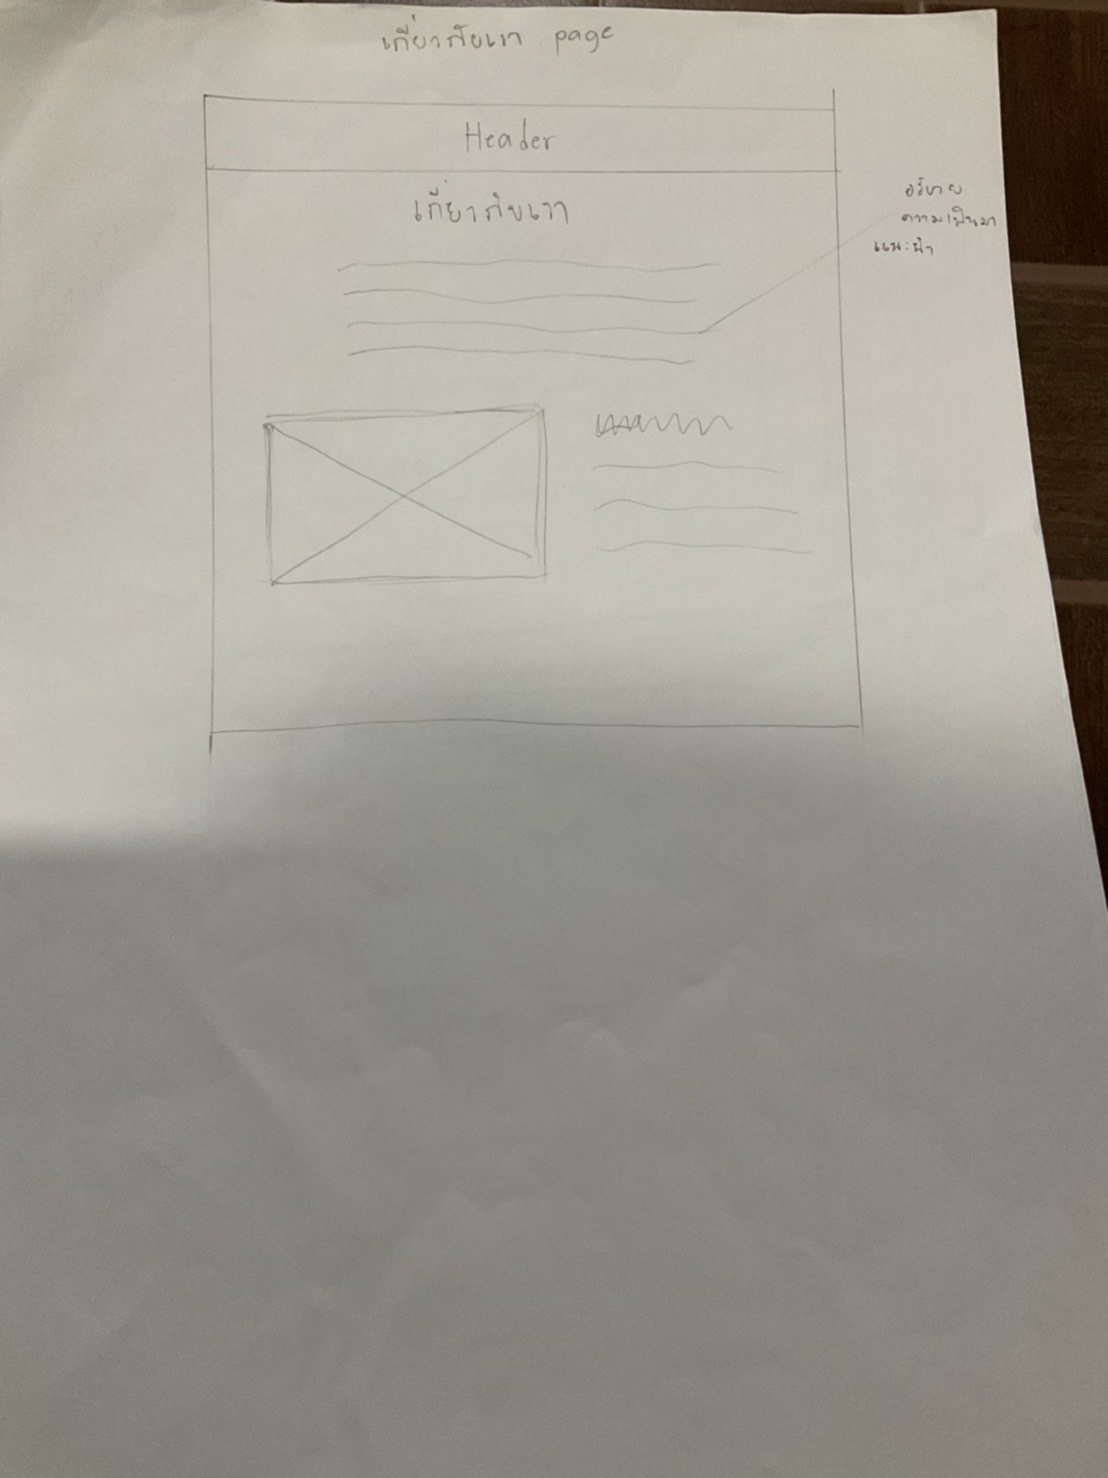 เกี่ยวกับเรา page
Header
เกี่ยวกับเรา
อธิบาย
ความเป็นมา
แนะนำ